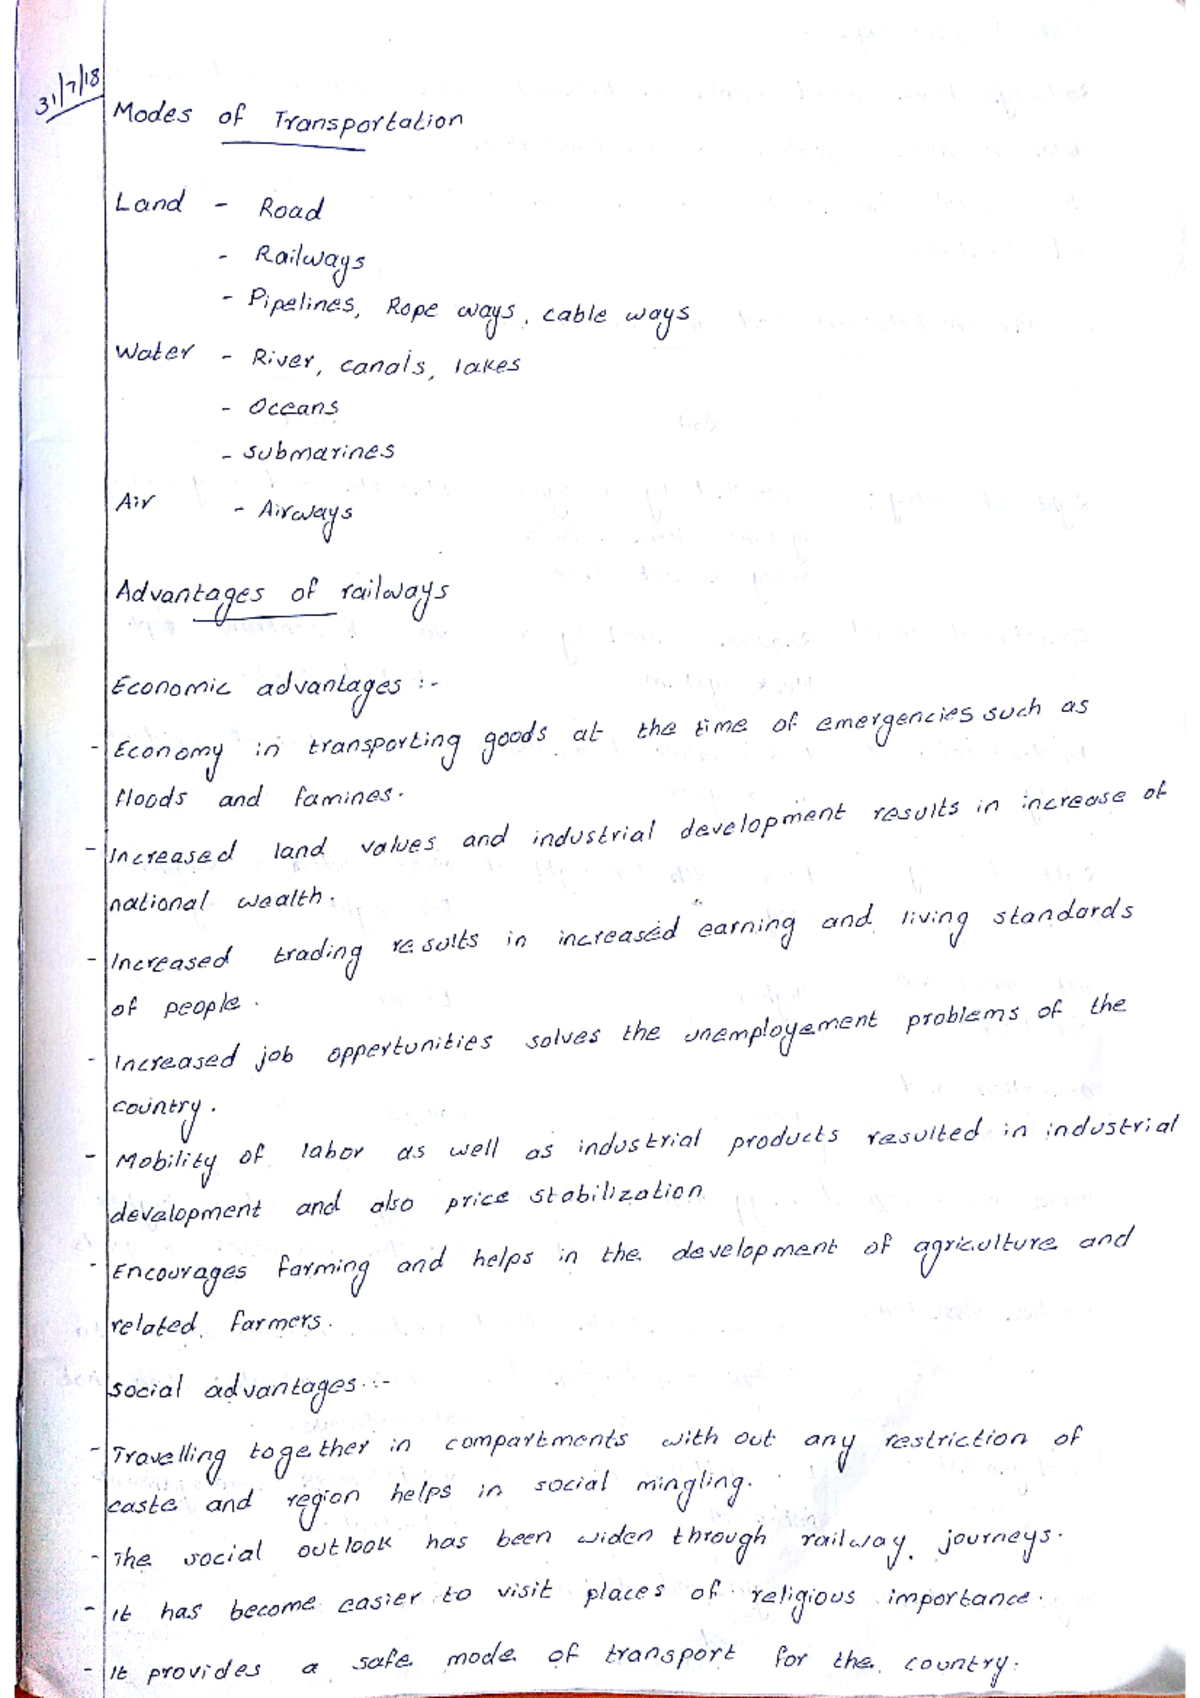 31/7/18
Modes of Transportation
Land - Road
- Railways
- Pipelines, Rope ways, cable ways
Water - River, canals, lakes
- Oceans
- submarines
Air - Airways
Advantages of railways
Economic advantages :-
- Economy in transporting goods at the time of emergencies such as
floods and famines.
- Increased land values and industrial development results in increase of
national wealth.
- Increased trading results in increased earning and living standards
of people.
- Increased job oppertunities solves the unemployement problems of the
country.
- Mobility of labor as well as industrial products resulted in industrial
development and also price stabilization
- Encourages farming and helps in the development of agriculture and
related farmers.
social advantages :-
- Travelling together in compartments with out any restriction of
caste and region helps in social mingling.
- The social outlook has been widen through railway journeys.
- It has become easier to visit places of religious importance.
- It provides a safe mode of transport for the country.